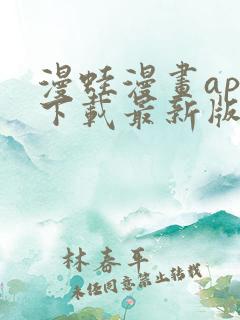 漫蛙漫畫ap
下載最新版
林春平
未經同意禁止轉載